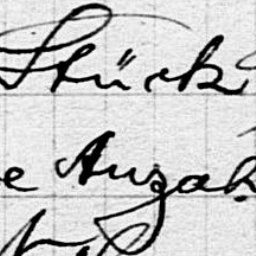 Stück
e Anzah